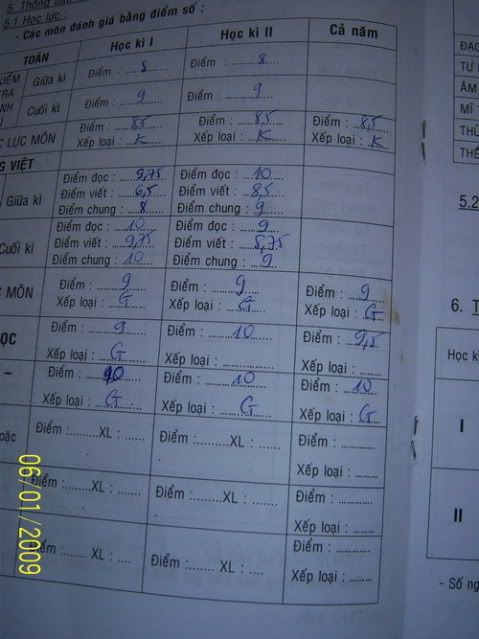 5. Thông báo
5.1 Học lực :
- Các môn đánh giá bằng điểm số :
TOÁN Học kì I Học kì II Cả năm
Giữa kì Điểm : 8 Điểm : 8
Cuối kì Điểm : 9 Điểm : 9
LỰC MÔN Điểm : 8,5 Điểm : 8,5 Điểm : 8,5
Xếp loại : K Xếp loại : K Xếp loại : K
VIỆT
Điểm đọc : 9,75 Điểm đọc : 10
Giữa kì Điểm viết : 6,5 Điểm viết : 8,5
Điểm chung : 8 Điểm chung : 9
Điểm đọc : 10 Điểm đọc : 9
Cuối kì Điểm viết : 9,75 Điểm viết : 8,75
Điểm chung : 10 Điểm chung : 9
MÔN Điểm : 9 Điểm : 9 Điểm : 9
Xếp loại : G Xếp loại : G Xếp loại : G
Điểm : 9 Điểm : 10 Điểm : 9,5
ỌC Xếp loại : G Xếp loại : Xếp loại :
Điểm : 10 Điểm : 10 Điểm : 10
Xếp loại : G Xếp loại : G Xếp loại : G
oặc Điểm : XL : Điểm : XL : Điểm :
Xếp loại :
Điểm : XL : Điểm : XL : Điểm :
Xếp loại :
Điểm : XL : Điểm : XL : Điểm :
Xếp loại :
ĐẠO
ÂM
MĨ
5.2
6.
Học kì
I
II
- Số ng
06/01/2009